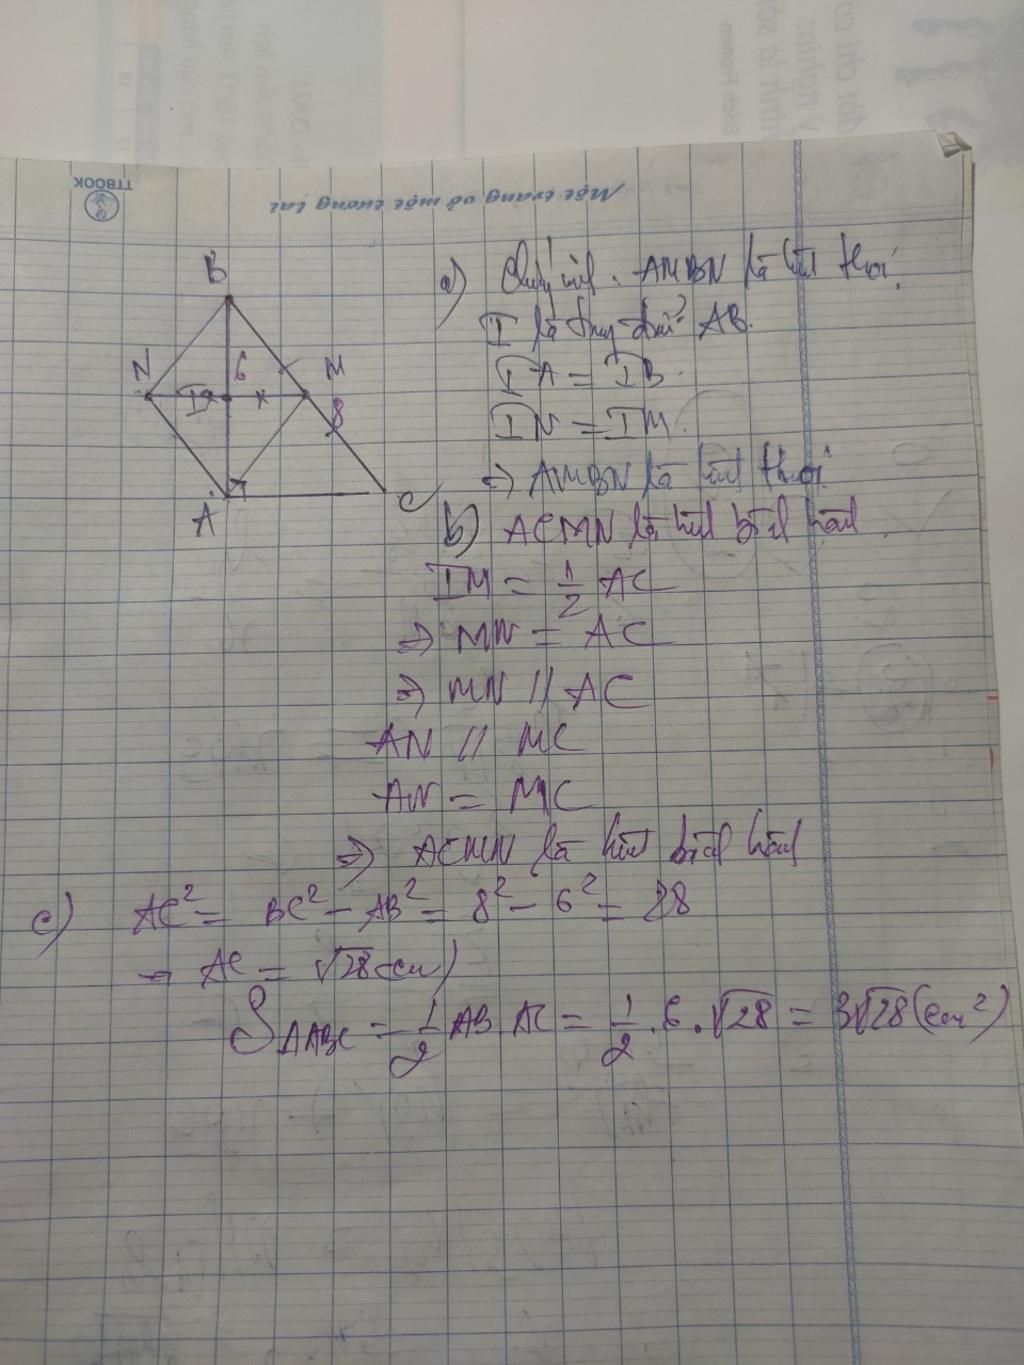 TTBOOK
Một trang vở một tương lai
B
N
6
M
I
8
A
C
a) Chứng minh. AMBN là hình thoi.
I là trung điểm AB.
IA = IB.
IN = IM.
=> AMBN là hình thoi
b) ACMN là hình bình hành
IM = 1/2 AC
=> MN = AC
=> MN // AC
AN // MC
AN = MC
=> ACMN là hình bình hành
c) AC² = BC² - AB² = 8² - 6² = 28
→ AC = √28 (cm)
S ΔABC = 1/2 AB AC = 1/2 . 6 . √28 = 3√28 (cm²)